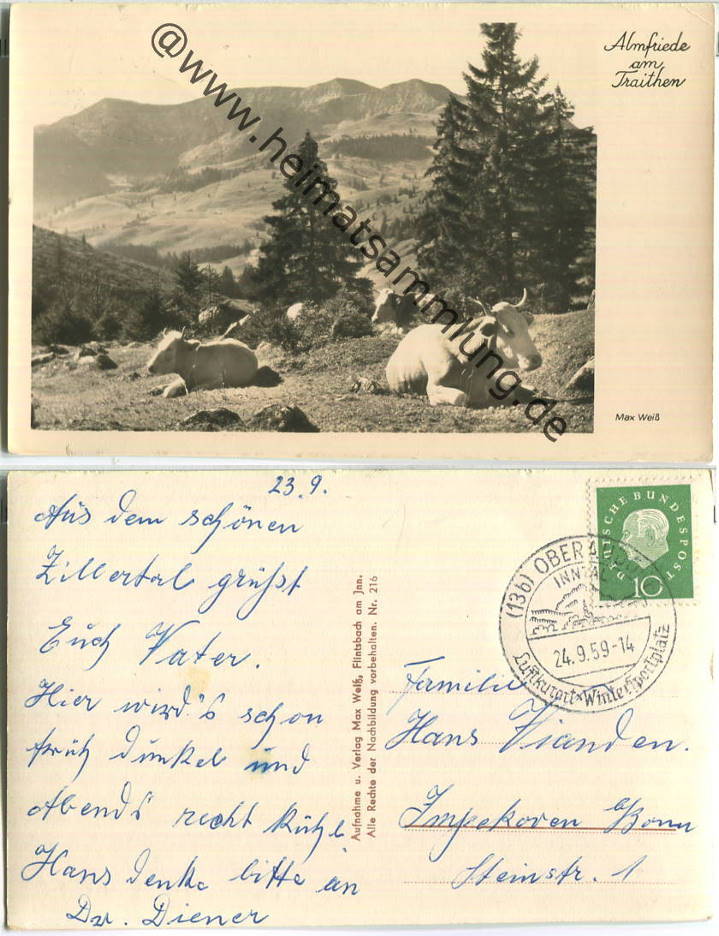 Almfriede
am
Traithen
@www.heimatsammlung.de
Max Weiß
23.9.
Aus dem schönen
Zillertal grüßt
Euch Vater.
Hier wird's schon
früh dunkel und
Abends recht kühl
Hans denke bitte an
Dr. Diener
Aufnahme u. Verlag Max Weiß, Flintsbach am Jnn.
Alle Rechte der Nachbildung vorbehalten. Nr. 216
DEUTSCHE BUNDESPOST
10
(13b) OBERAUDORF
INNTAL
24.9.59-14
Luftkurort × Wintersportplatz
Familie
Hans Vianden.
Impekoven b/Bonn
Steinstr. 1